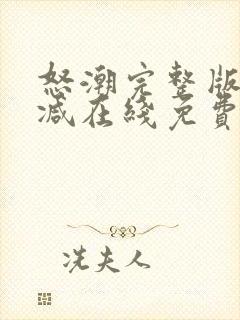 怒潮完整版
减在綫免費
冼夫人